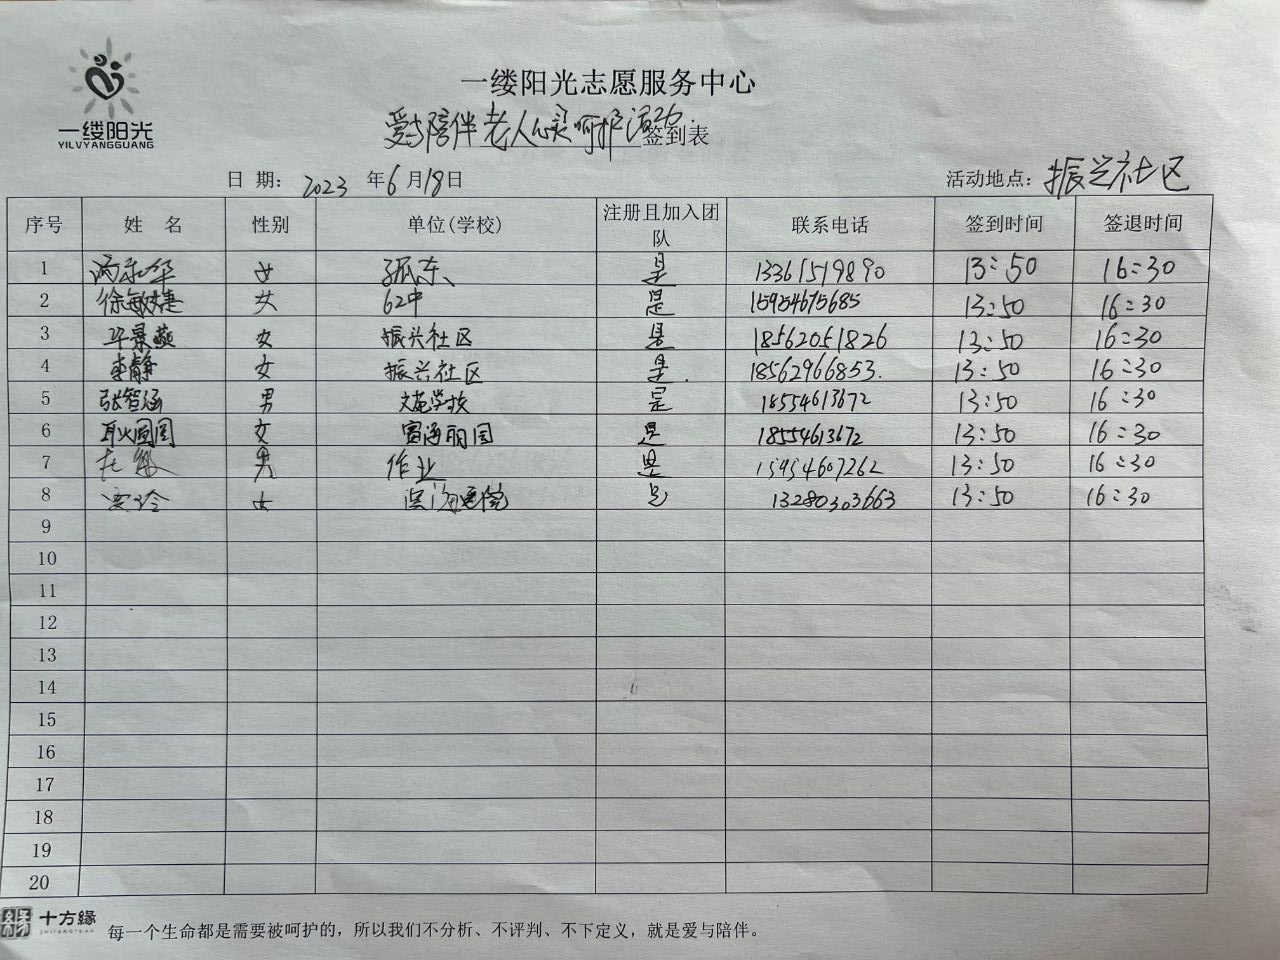 一缕阳光志愿服务中心
一缕阳光
YILVYANGGUANG
爱与陪伴老人心灵呵护活动 签到表
日 期: 2023 年 6 月 18 日 活动地点: 振兴社区
序号 姓 名 性别 单位(学校) 注册且加入团队 联系电话 签到时间 签退时间
1 女 孤东、 是 13361519890 13:50 16:30
2 徐敏婕 女 62中 是 15954675685 13:50 16:30
3 女 振兴社区 是 18562051826 13:50 16:30
4 李静 女 振兴社区 是. 18562966853. 13:50 16:30
5 张智涵 男 文苑学校 是 18554613672 13:50 16:30
6 耿圆圆 女 富海丽园 是 18554613672 13:50 16:30
7 男 作业 是 15954607262 13:50 16:30
8 女 是 13280303663 13:50 16:30
9
10
11
12
13
14
15
16
17
18
19
20
十方緣
SHIFANGYUAN
每一个生命都是需要被呵护的，所以我们不分析、不评判、不下定义，就是爱与陪伴。